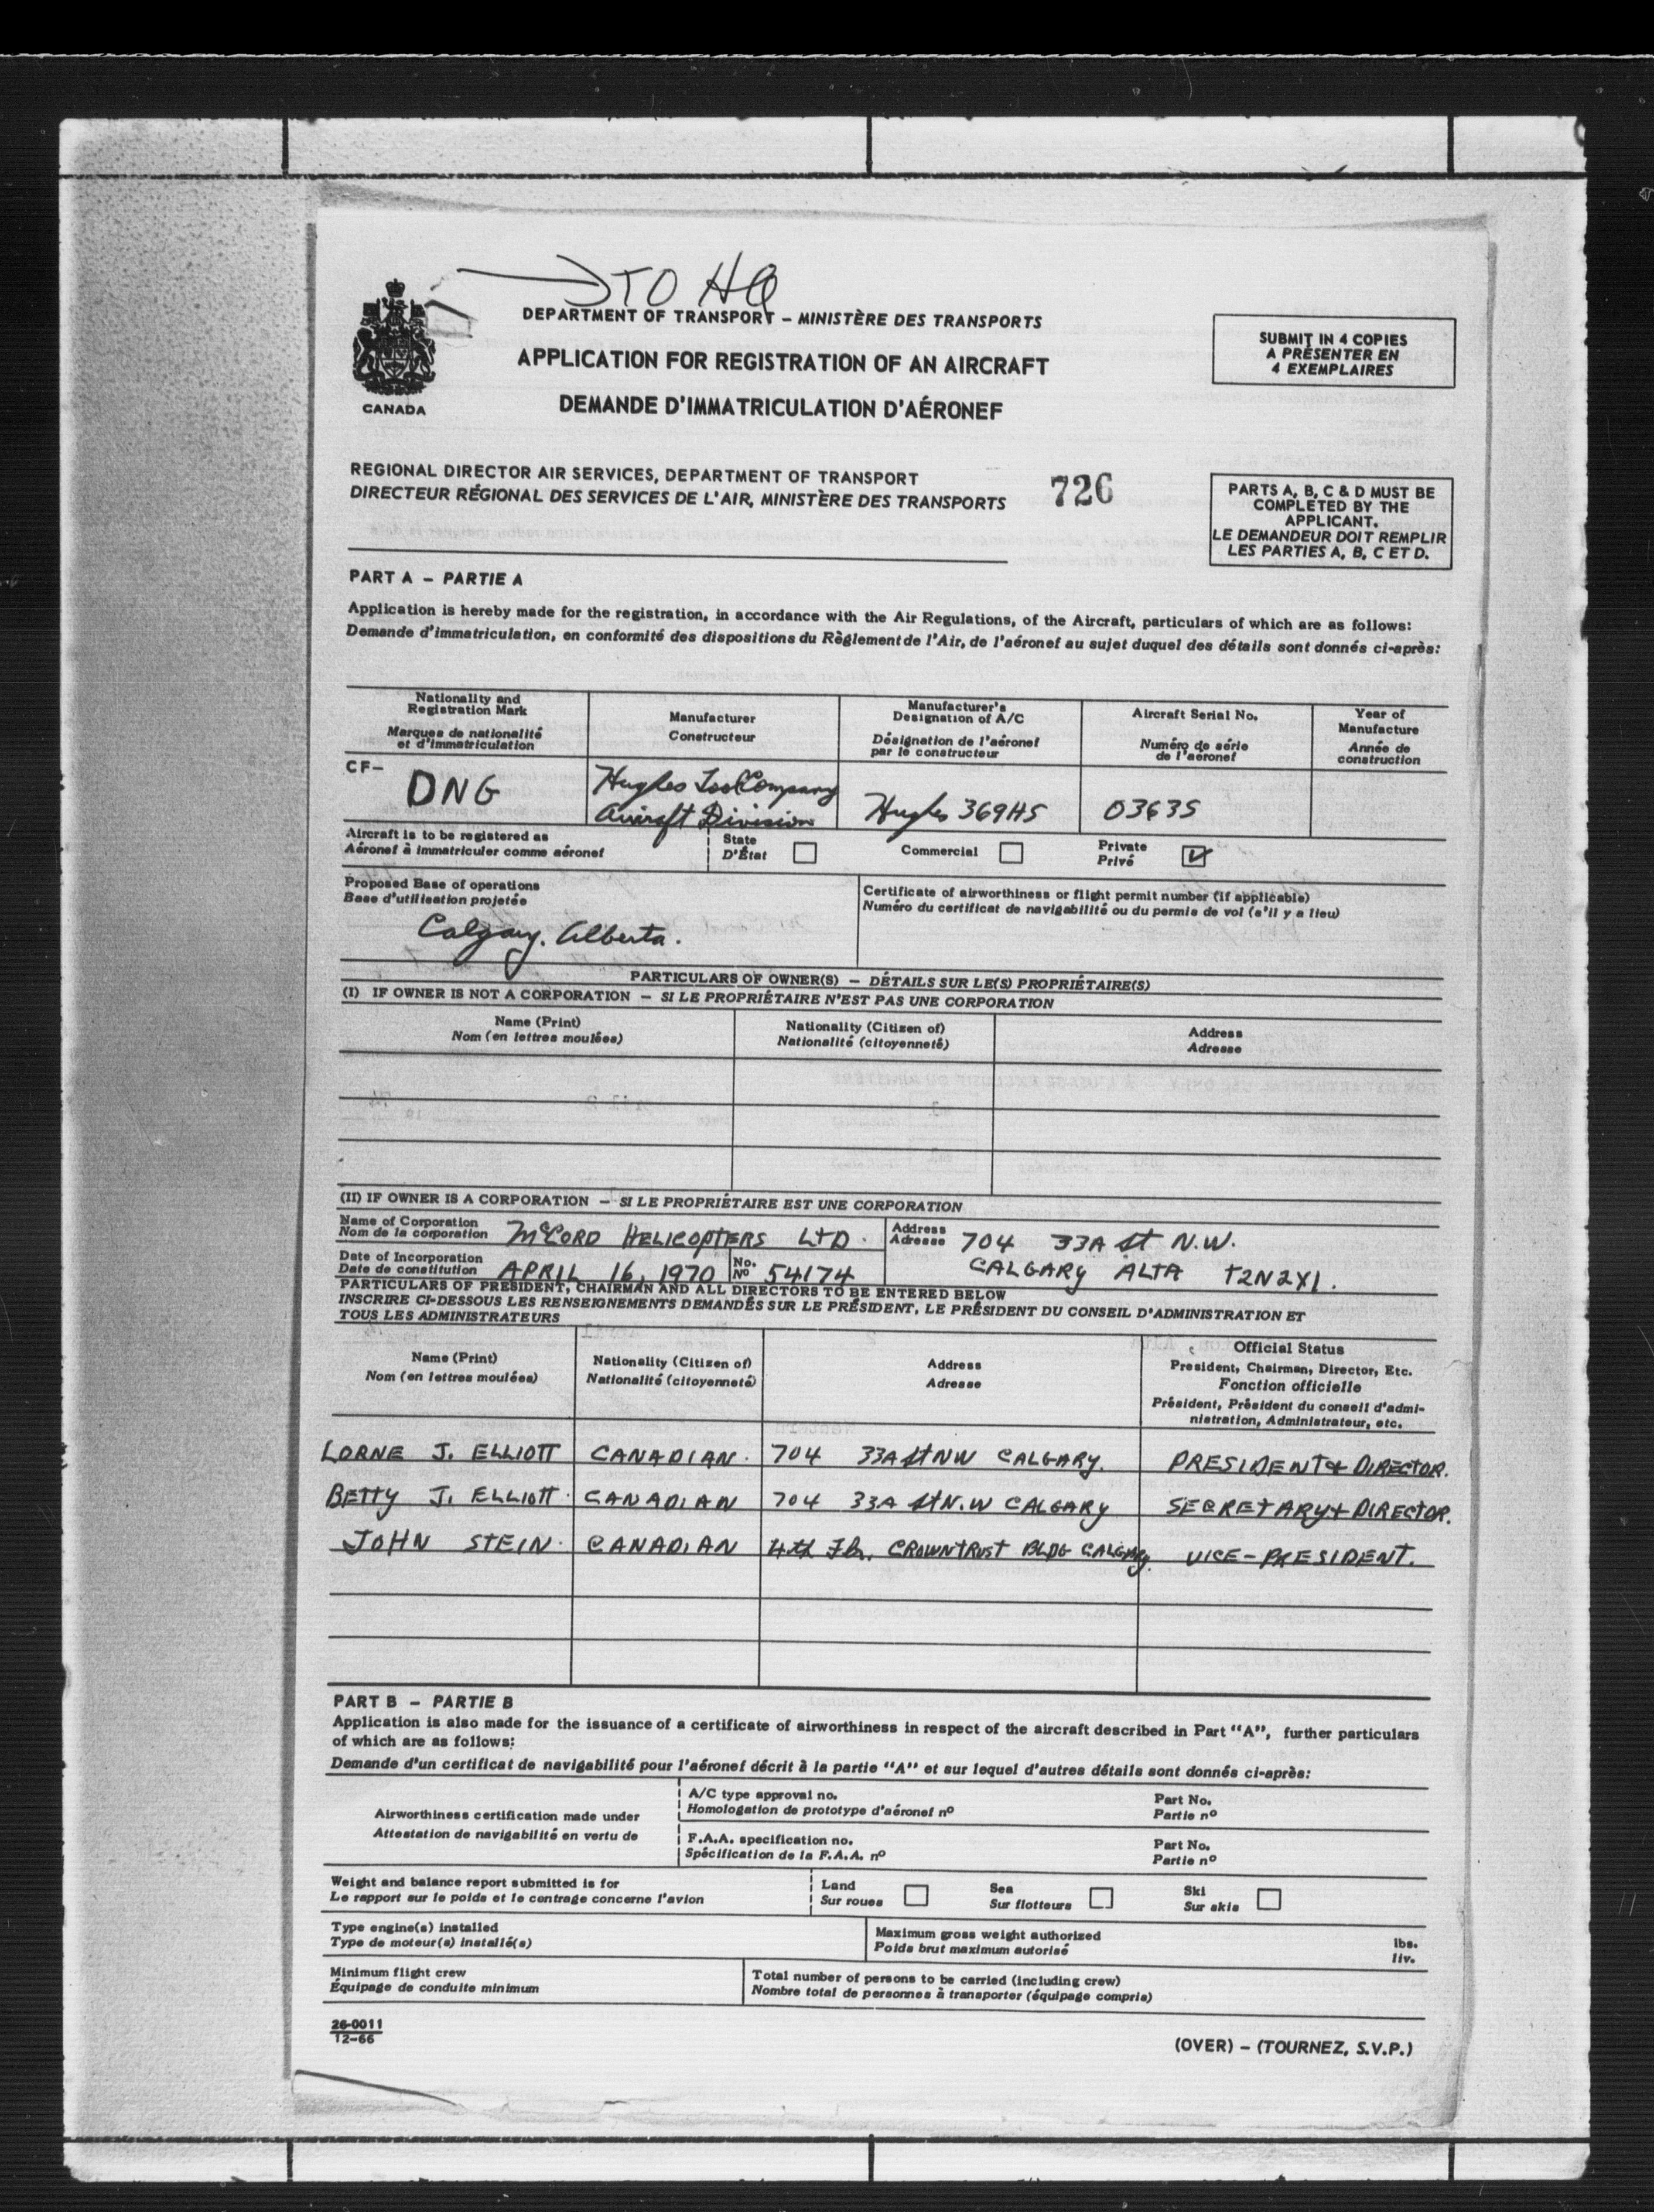 TO HQ
DEPARTMENT OF TRANSPORT – MINISTÈRE DES TRANSPORTS
APPLICATION FOR REGISTRATION OF AN AIRCRAFT
DEMANDE D'IMMATRICULATION D'AÉRONEF
CANADA
SUBMIT IN 4 COPIES
A PRÉSENTER EN
4 EXEMPLAIRES
REGIONAL DIRECTOR AIR SERVICES, DEPARTMENT OF TRANSPORT
DIRECTEUR RÉGIONAL DES SERVICES DE L'AIR, MINISTÈRE DES TRANSPORTS
726
PARTS A, B, C & D MUST BE
COMPLETED BY THE
APPLICANT.
LE DEMANDEUR DOIT REMPLIR
LES PARTIES A, B, C ET D.
PART A – PARTIE A
Application is hereby made for the registration, in accordance with the Air Regulations, of the Aircraft, particulars of which are as follows:
Demande d'immatriculation, en conformité des dispositions du Règlement de l'Air, de l'aéronef au sujet duquel des détails sont donnés ci-après:
Nationality and
Registration Mark
Marques de nationalité
et d'immatriculation
Manufacturer
Constructeur
Manufacturer's
Designation of A/C
Désignation de l'aéronef
par le constructeur
Aircraft Serial No.
Numéro de série
de l'aéronef
Year of
Manufacture
Année de
construction
CF– DNG
Hughes Tool Company
Aircraft Division
Hughes 369HS
03635
Aircraft is to be registered as
Aéronef à immatriculer comme aéronef
State
D'État
Commercial
Private
Privé
Proposed Base of operations
Base d'utilisation projetée
Calgary. Alberta.
Certificate of airworthiness or flight permit number (if applicable)
Numéro du certificat de navigabilité ou du permis de vol (s'il y a lieu)
PARTICULARS OF OWNER(S) – DÉTAILS SUR LE(S) PROPRIÉTAIRE(S)
(I) IF OWNER IS NOT A CORPORATION – SI LE PROPRIÉTAIRE N'EST PAS UNE CORPORATION
Name (Print)
Nom (en lettres moulées)
Nationality (Citizen of)
Nationalité (citoyenneté)
Address
Adresse
(II) IF OWNER IS A CORPORATION – SI LE PROPRIÉTAIRE EST UNE CORPORATION
Name of Corporation
Nom de la corporation
McCORD HELICOPTERS LTD.
Address
Adresse
704 33A St N.W.
CALGARY ALTA T2N2X1.
Date of Incorporation
Date de constitution
APRIL 16, 1970
No.
Nº
54174
PARTICULARS OF PRESIDENT, CHAIRMAN AND ALL DIRECTORS TO BE ENTERED BELOW
INSCRIRE CI-DESSOUS LES RENSEIGNEMENTS DEMANDÉS SUR LE PRÉSIDENT, LE PRÉSIDENT DU CONSEIL D'ADMINISTRATION ET
TOUS LES ADMINISTRATEURS
Name (Print)
Nom (en lettres moulées)
Nationality (Citizen of)
Nationalité (citoyenneté)
Address
Adresse
Official Status
President, Chairman, Director, Etc.
Fonction officielle
Président, Président du conseil d'admi-
nistration, Administrateur, etc.
LORNE J. ELLIOTT CANADIAN. 704 33A St NW CALGARY. PRESIDENT & DIRECTOR.
BETTY J. ELLIOTT. CANADIAN 704 33A St N.W CALGARY SECRETARY & DIRECTOR.
JOHN STEIN. CANADIAN 4th Flr. CROWN TRUST BLDG CALGARY. VICE-PRESIDENT.
PART B – PARTIE B
Application is also made for the issuance of a certificate of airworthiness in respect of the aircraft described in Part "A", further particulars
of which are as follows:
Demande d'un certificat de navigabilité pour l'aéronef décrit à la partie "A" et sur lequel d'autres détails sont donnés ci-après:
Airworthiness certification made under
Attestation de navigabilité en vertu de
A/C type approval no.
Homologation de prototype d'aéronef nº
Part No.
Partie nº
F.A.A. specification no.
Spécification de la F.A.A. nº
Part No.
Partie nº
Weight and balance report submitted is for
Le rapport sur le poids et le centrage concerne l'avion
Land
Sur roues
Sea
Sur flotteurs
Ski
Sur skis
Type engine(s) installed
Type de moteur(s) installé(s)
Maximum gross weight authorized
Poids brut maximum autorisé
lbs.
liv.
Minimum flight crew
Équipage de conduite minimum
Total number of persons to be carried (including crew)
Nombre total de personnes à transporter (équipage compris)
26-0011
12-66
(OVER) – (TOURNEZ, S.V.P.)